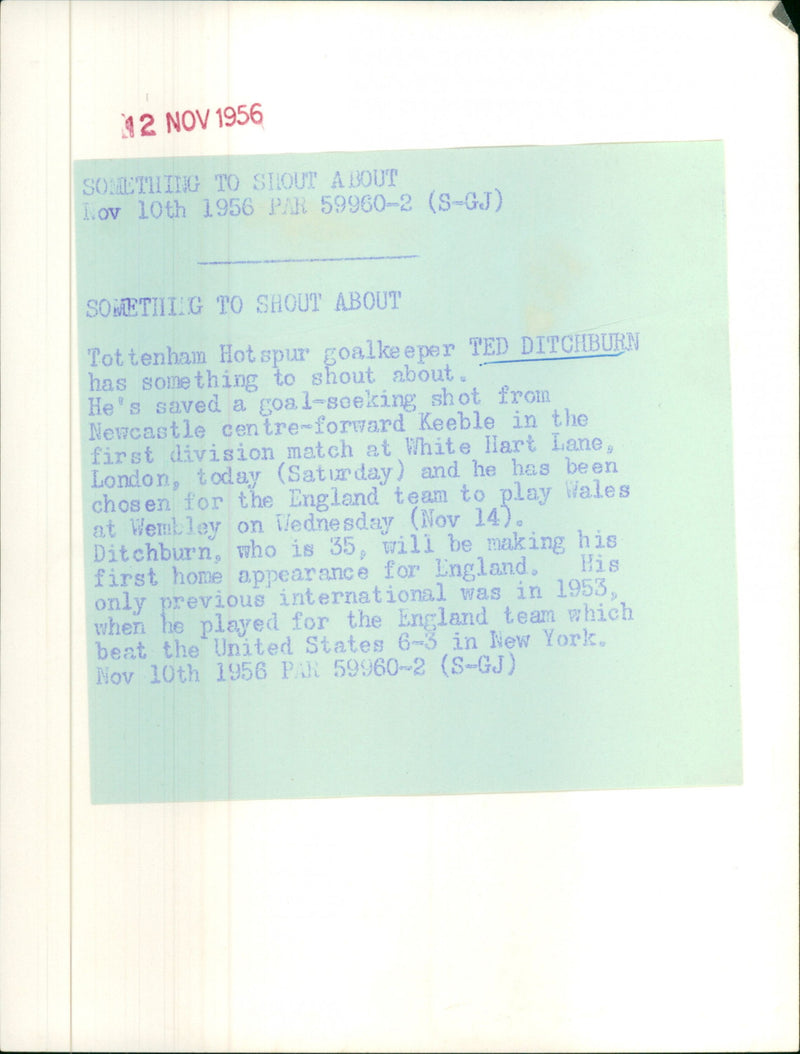 12 NOV 1956
SOMETHING TO SHOUT ABOUT
Nov 10th 1956 PAR 59960-2 (S-GJ)
SOMETHING TO SHOUT ABOUT
Tottenham Hotspur goalkeeper TED DITCHBURN
has something to shout about.
He's saved a goal-seeking shot from
Newcastle centre-forward Keeble in the
first division match at White Hart Lane,
London, today (Saturday) and he has been
chosen for the England team to play Wales
at Wembley on Wednesday (Nov 14).
Ditchburn, who is 35, will be making his
first home appearance for England. His
only previous international was in 1953,
when he played for the England team which
beat the United States 6-3 in New York.
Nov 10th 1956 PAR 59960-2 (S-GJ)